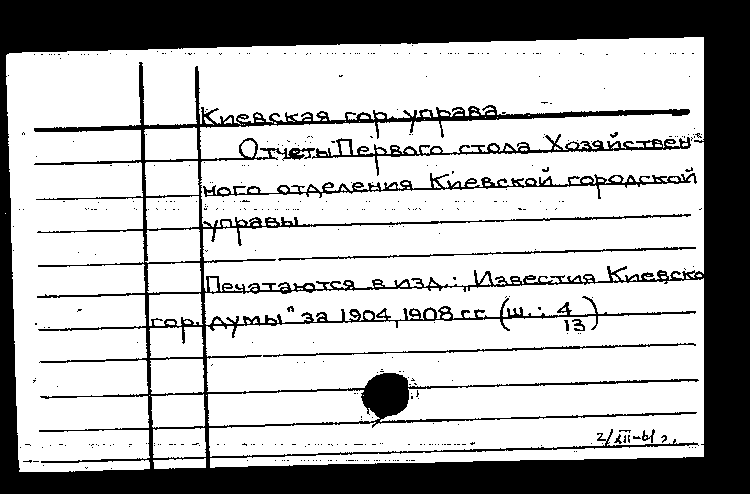 Киевская гор. управа.
Отчеты Первого стола Хозяйствен-
ного отделения Киевской городской
управы.
Печатаются в изд.: „Известия Киевско
гор. думы" за 1904, 1908 гг (ш.: 4/13).